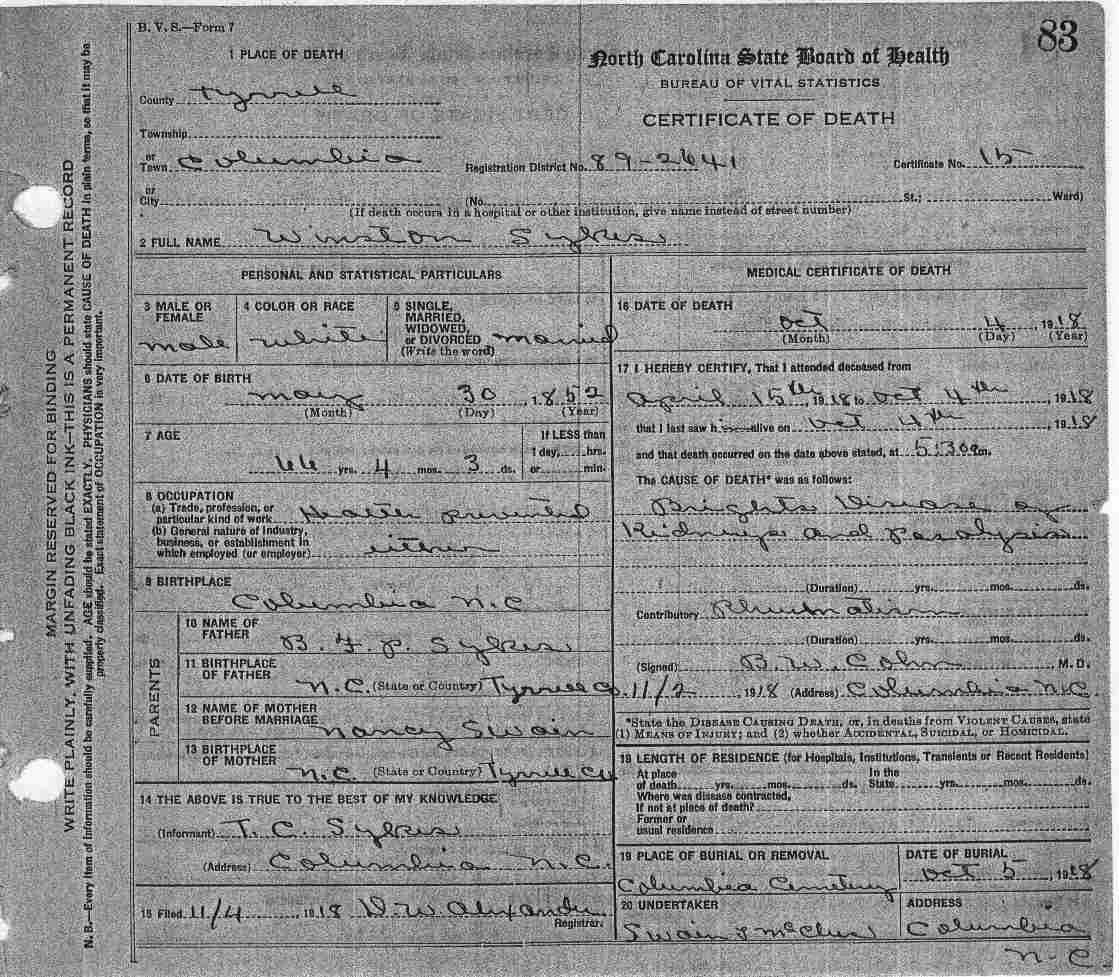 B. V. S.—Form 7
83
1 PLACE OF DEATH
North Carolina State Board of Health
BUREAU OF VITAL STATISTICS
CERTIFICATE OF DEATH
County Tyrrell
Township
or Town Columbia Registration District No. 89-2641 Certificate No. 15
or City (No. St.; Ward)
(If death occurs in a hospital or other institution, give name instead of street number)
2 FULL NAME Winston Sykes
PERSONAL AND STATISTICAL PARTICULARS
3 MALE OR FEMALE male
4 COLOR OR RACE white
5 SINGLE, MARRIED, WIDOWED, or DIVORCED (Write the word) married
6 DATE OF BIRTH
may 30, 1852
(Month) (Day) (Year)
7 AGE
66 yrs. 4 mos. 3 ds.
If LESS than
1 day, hrs.
or min.
8 OCCUPATION
(a) Trade, profession, or
particular kind of work Health prevented
(b) General nature of Industry,
business, or establishment in
which employed (or employer) either
9 BIRTHPLACE
Columbia N.C
PARENTS
10 NAME OF FATHER
B. F. P. Sykes
11 BIRTHPLACE OF FATHER
N.C. (State or Country) Tyrrell Co.
12 NAME OF MOTHER BEFORE MARRIAGE
Nancy Swain
13 BIRTHPLACE OF MOTHER
N.C. (State or Country) Tyrrell Co
14 THE ABOVE IS TRUE TO THE BEST OF MY KNOWLEDGE
(Informant) T. C. Sykes
(Address) Columbia N.C.
15 Filed 11/4, 1918 D. W. Alexander
Registrar.
MEDICAL CERTIFICATE OF DEATH
16 DATE OF DEATH
Oct 4, 1918
(Month) (Day) (Year)
17 I HEREBY CERTIFY, That I attended deceased from
April 15th, 1918 to Oct 4th, 1918
that I last saw h alive on Oct 4th, 1918
and that death occurred on the date above stated, at 5:30 m.
The CAUSE OF DEATH* was as follows:
Brights Disease of
Kidneys and Paralysis
(Duration) yrs. mos. ds.
Contributory Rhumatism
(Duration) yrs. mos. ds.
(Signed) B. W. Cohn M. D.
11/2 1918 (Address) Columbia N.C.
*State the DISEASE CAUSING DEATH, or, in deaths from VIOLENT CAUSES, state
(1) MEANS OF INJURY; and (2) whether ACCIDENTAL, SUICIDAL, or HOMICIDAL.
18 LENGTH OF RESIDENCE (for Hospitals, Institutions, Transients or Recent Residents)
At place of death yrs. mos. ds. In the State yrs. mos. ds.
Where was disease contracted,
If not at place of death?
Former or
usual residence
19 PLACE OF BURIAL OR REMOVAL
Columbia Cemetery
DATE OF BURIAL
Oct 5, 1918
20 UNDERTAKER
Swain &
ADDRESS
Columbia
N.C.
MARGIN RESERVED FOR BINDING
WRITE PLAINLY, WITH UNFADING BLACK INK—THIS IS A PERMANENT RECORD
N. B.—Every item of information should be carefully supplied. AGE should be stated EXACTLY. PHYSICIANS should state CAUSE OF DEATH in plain terms, so that it may be
properly classified. Exact statement of OCCUPATION is very important.